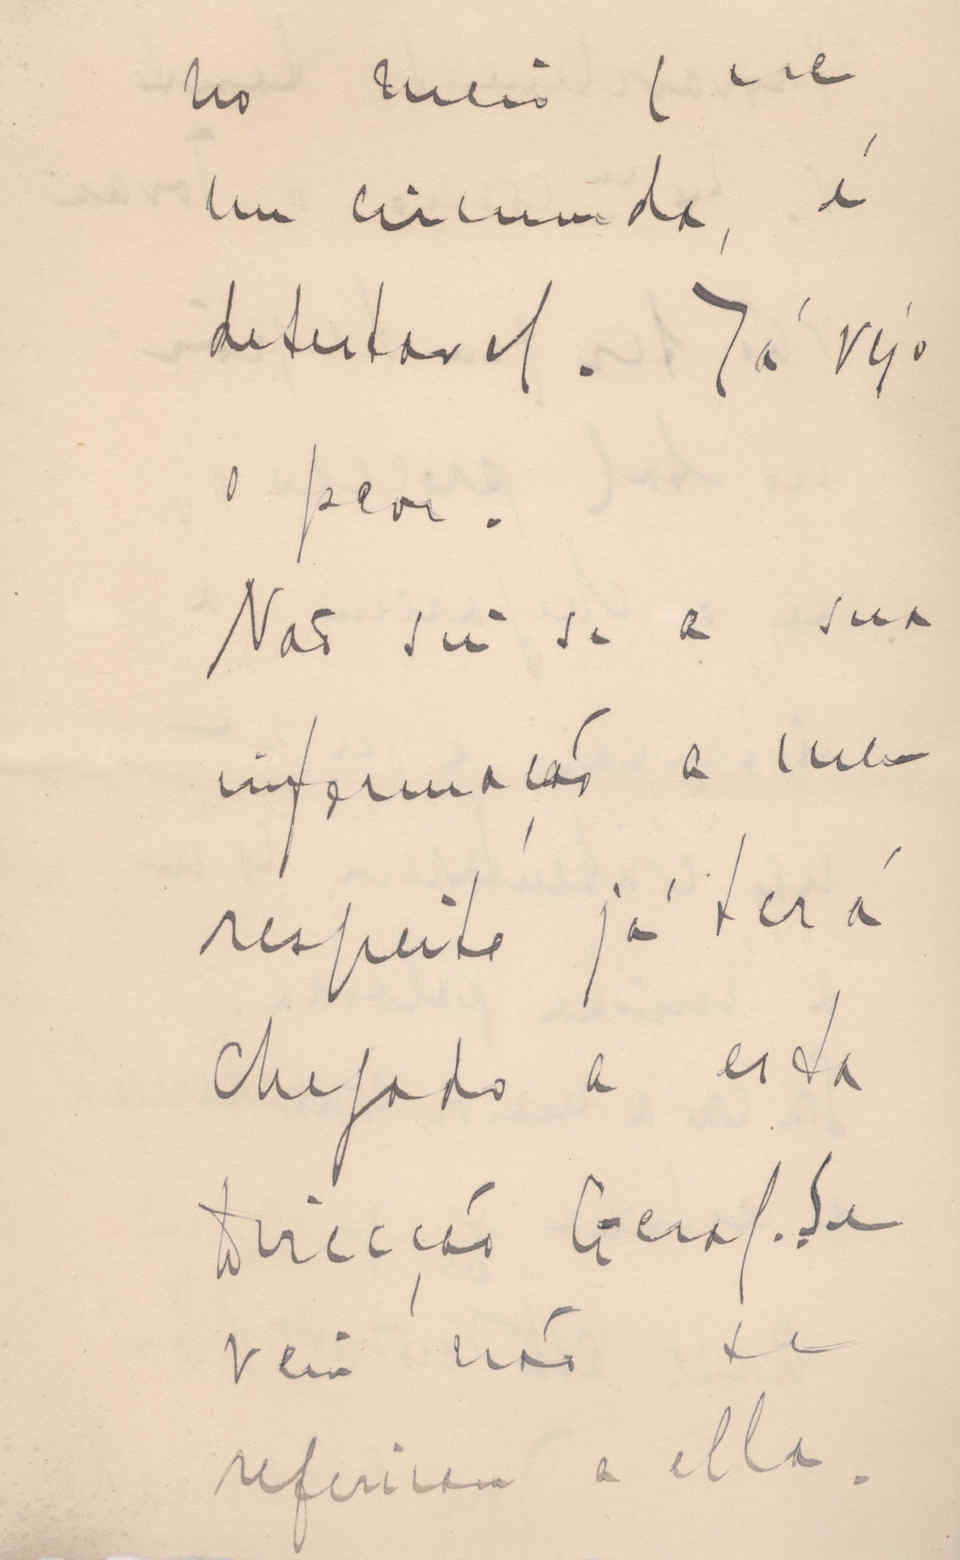 no meio que
me circunda, é
detestavel. Já vejo
o peor.
Não sei se a sua
informação a meu
respeito já terá
chegado a esta
Direcção Geral. Se
veiu não se
referiram a ella.